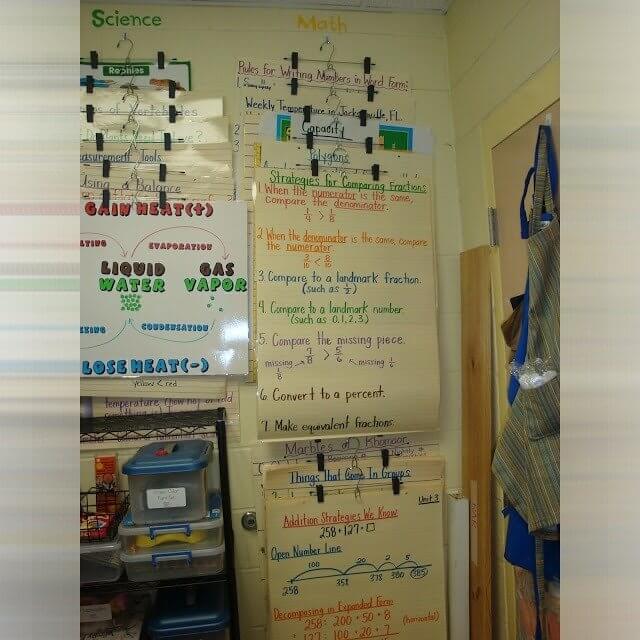 Science
Math
Reptiles
Rules for Writing Numbers in Word Form:
Weekly Temperature in Jacksonville, FL.
Capacity
Polygons
Measurement Tools
Using a Balance
GAIN HEAT(+)
EVAPORATION
LIQUID
WATER
GAS
VAPOR
CONDENSATION
LOSE HEAT(-)
yellow < red
temperature
Strategies for Comparing Fractions
1. When the numerator is the same,
Compare the denominator.
1/4 > 1/8
2. When the denominator is the same, compare
the numerator.
3/10 < 8/10
3. Compare to a landmark fraction.
(such as 1/2)
4. Compare to a landmark number
(such as 0,1,2,3)
5. Compare the missing piece.
missing 1/8 → 7/8 > 5/6 ← missing 1/6
6. Convert to a percent.
7. Make equivalent fractions.
Marbles of Khomoor
Things That Come In Groups
Unit 3
Addition Strategies We Know
258+127=□
Open Number Line
100 20 2 5
258 358 378 380 385
Decomposing in Expanded Form
258= 200 + 50 + 8 (horizontal)
127= 100 + 20 + 7